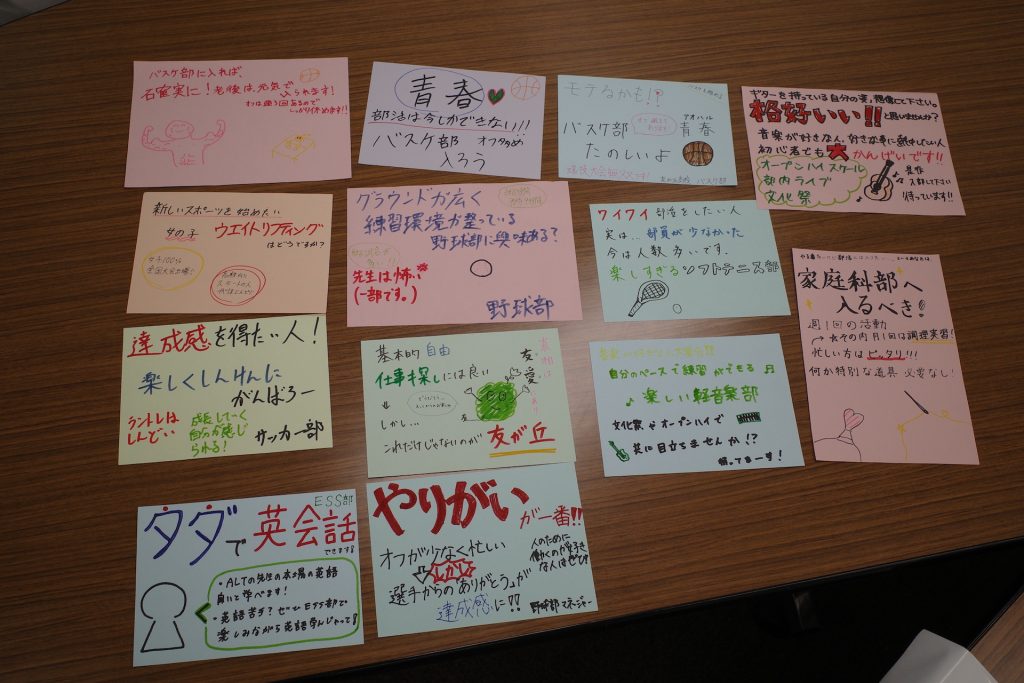 バスケ部に入れば、
石宮実に！老後は元気で
入られます！
オフは週1回あるので
しっかり休めます！！
青春
部活は今しかできない！！
バスケ部 オフ多め
入ろう
モテるかも！？
バスケ部
アオハル
青春
たのしいよ
バスケ部
ギターを持っている自分の姿、想像して下さい。
格好いい!!と思いませんか？
音楽が好きな人、好きな事に熱中したい人
初心者でも大かんげいです!!
オープンハイスクール
部内ライブ
文化祭
是非
入部して下さい
待っています!!
新しいスポーツを始めたい
女の子 ウエイトリフティング
はどうですか？
女子100%
全国大会出場！
グラウンドが広く
練習環境が整っている
野球部に興味ある？
先生は怖い
(一部です。)
野球部
ワイワイ 部活をしたい人
実は… 部員が少なかった
今は人数多いです。
楽しすぎるソフトテニス部
家庭科部へ
入るべき！
週1回の活動
☆その内月1回は調理実習！
忙しい方はピッタリ!!!
何か特別な道具 必要なし！
達成感を得たい人！
楽しくしんけんに
がんばろー
ラントレは
しんどい
成長していく
自分が感じ
られる！
サッカー部
基本的 自由
仕事探しには良い
しかし…
これだけじゃないのが 友が丘
友愛
自分のペースで練習ができる♬
♪楽しい軽音楽部
文化祭やオープンハイで
共に目立ちませんか!?
待ってまーす！
ESS部
タダで英会話
できます！
・ALTの先生の本場の英語
・英語苦手？ぜーんぜんESS部で
楽しみながら英語学んじゃって！
やりがい
が一番!!
オフが少なく忙しい
しかし
選手からの「ありがとう」が
達成感に!!
人のために
働くのが好き
な人はぜひ!!
野球部マネージャー